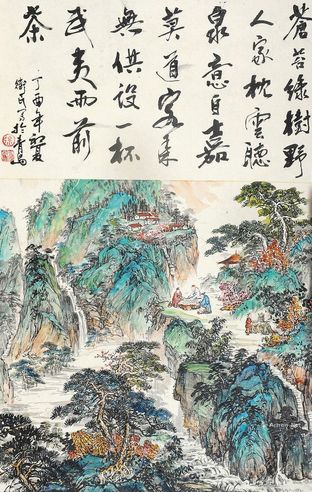 蒼苔綠樹野
人家枕雲聽
泉意自嘉
莫道客來
無供設一杯
武夷雨前
茶
丁酉年初夏
衛民寫於青島
Artron.Net